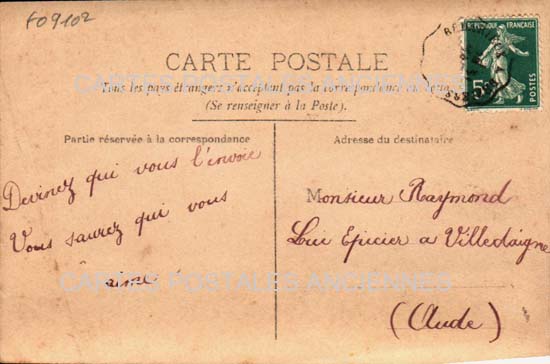 F09102
RÉPUBLIQUE FRANÇAISE
5c
POSTES
CARTE POSTALE
CARTES POSTALES ANCIENNES
Tous les pays étrangers n'acceptent pas la correspondance au
(Se renseigner à la Poste).
Partie réservée à la correspondance
Devinez qui vous l'envoie
Vous saurez qui vous
aime
Adresse du destinataire
Monsieur Raymond
Epicier a Villedaigne
(Aude)
CARTES POSTALES ANCIENNES